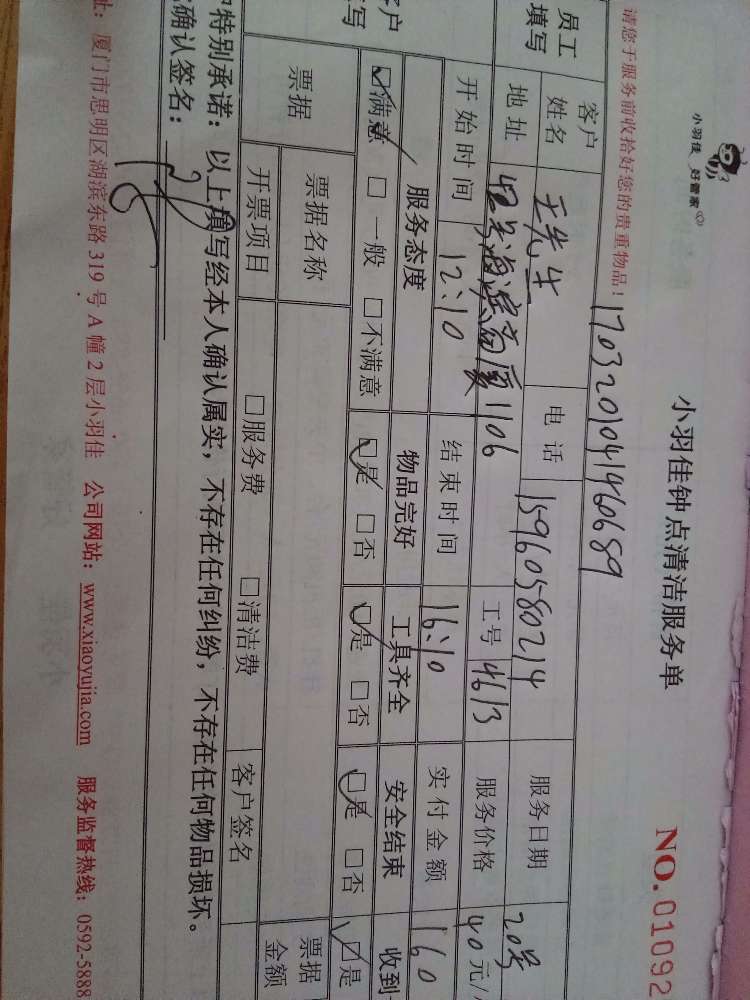 小羽佳 好管家
小羽佳钟点清洁服务单
NO.01092
请您于服务前收拾好您的贵重物品!
17032010419460689
员工填写 客户姓名 王先生 电话 15960580214 服务日期 20号
地址 42号海滨商厦1106 工号 4613 服务价格 40元/
开始时间 12:10 结束时间 16:10 实付金额 160
客户 写 服务态度 物品完好 工具齐全 安全结束 收到
☑满意 □一般 □不满意 ☑是 □否 ☑是 □否 ☑是 □否 ☑是
票据 票据名称 票据金额
开票项目 □服务费 □清洁费 客户签名
特别承诺:以上填写经本人确认属实,不存在任何纠纷,不存在任何物品损坏。
确认签名:
址:厦门市思明区湖滨东路319号A幢2层小羽佳 公司网站:www.xiaoyujia.com 服务监督热线:0592-5888